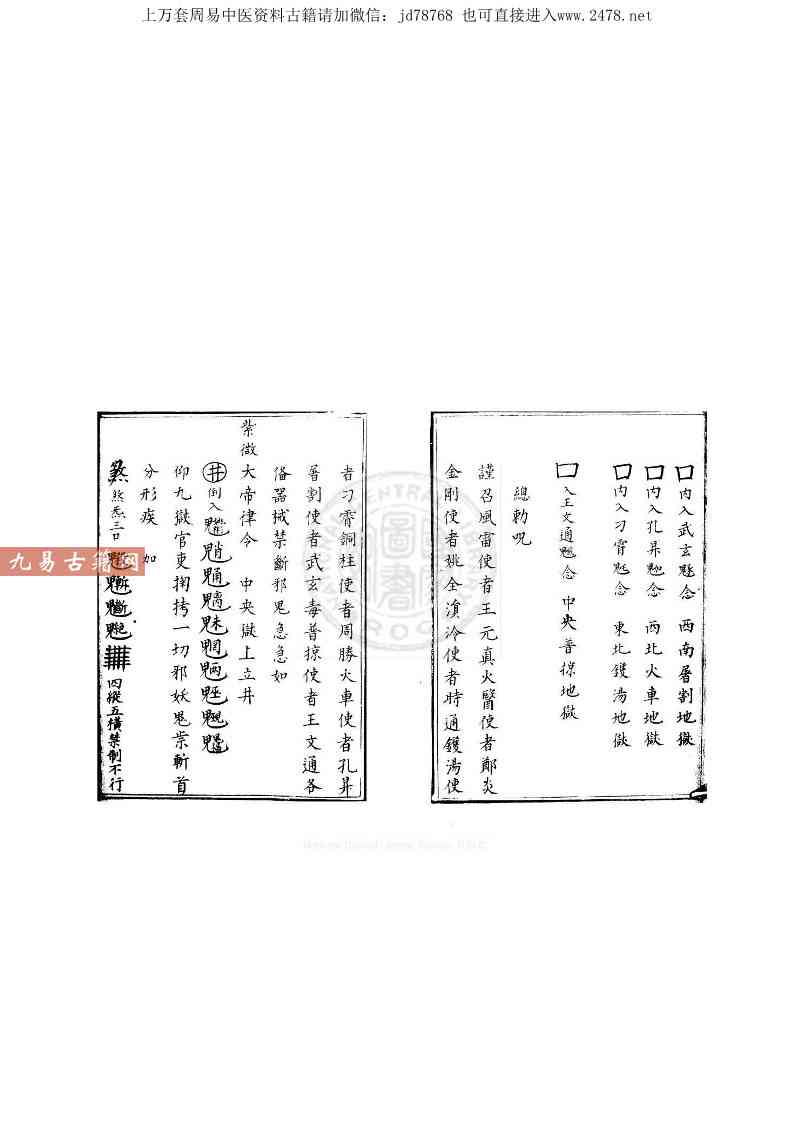 上万套周易中医资料古籍请加微信：jd78768 也可直接进入www.2478.net
口内入武玄魁念 西南屠割地獄
口内入孔昇魁念 西北火車地獄
口内入刁霄魁念 東北鑊湯地獄
口入王文通魁念 中央普掠地獄
總勅呪
謹召風雷使者王元真火醫使者鄭炎
金剛使者姚全滇泠使者時通鑊湯使
者刁霄銅柱使者周勝火車使者孔昇
屠割使者武玄毒普掠使者王文通各
俻器械禁斷邪鬼急急如
紫微大帝律令 中央獄上立井
井倒入
仰九獄官吏掬拷一切邪妖鬼祟斬首
分形疾 如
煞 炁三口 四縱五横禁制不行
九易古籍网